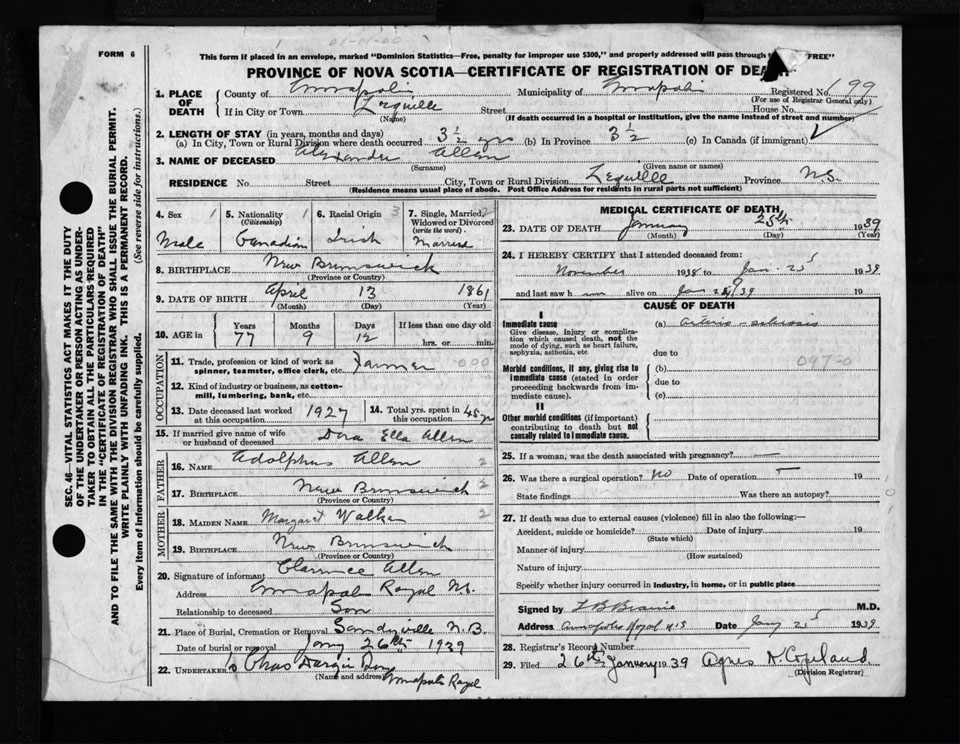 01-01-00
FORM 6
This form if placed in an envelope, marked "Dominion Statistics—Free, penalty for improper use $300," and properly addressed will pass through FREE"
PROVINCE OF NOVA SCOTIA—CERTIFICATE OF REGISTRATION OF DEATH
1. PLACE OF DEATH County of Annapolis Municipality of Annapolis Registered No. 199
(For use of Registrar General only)
If in City or Town Lequille Street House No.
(Name) (If death occurred in a hospital or institution, give the name instead of street and number)
2. LENGTH OF STAY (in years, months and days)
(a) In City, Town or Rural Division where death occurred 3 1/2 yrs (b) In Province 3 1/2 (c) In Canada (if immigrant)
3. NAME OF DECEASED Alexander Allen
(Surname) (Given name or names)
RESIDENCE No. Street City, Town or Rural Division Lequille Province N.S.
(Residence means usual place of abode. Post Office Address for residents in rural parts not sufficient)
4. Sex 1 Male
5. Nationality 1 (Citizenship) Canadian
6. Racial Origin 3 Irish
7. Single, Married, Widowed or Divorced (write the word) 2 Married
8. BIRTHPLACE New Brunswick
(Province or Country)
9. DATE OF BIRTH April 13 1861
(Month) (Day) (Year)
10. AGE in Years 77 Months 9 Days 12 If less than one day old hrs. or min.
OCCUPATION
11. Trade, profession or kind of work as spinner, teamster, office clerk, etc. Farmer 000
12. Kind of industry or business, as cotton-mill, lumbering, bank, etc.
13. Date deceased last worked at this occupation 1927
14. Total yrs. spent in this occupation 45 yrs
15. If married give name of wife or husband of deceased Dora Ella Allen
FATHER
16. NAME Adolphus Allen 2
17. BIRTHPLACE New Brunswick 2
(Province or Country)
MOTHER
18. MAIDEN NAME Margaret Walker 2
19. BIRTHPLACE New Brunswick
(Province or Country)
20. Signature of informant Clarence Allen
Address Annapolis Royal N.S.
Relationship to deceased Son
21. Place of Burial, Cremation or Removal Sandyville N.B.
Date of burial or removal Jany 26th 1939
22. UNDERTAKER Chas Dargie Son
(Name and address) Annapolis Royal
MEDICAL CERTIFICATE OF DEATH
23. DATE OF DEATH January 25th 1939
(Month) (Day) (Year)
24. I HEREBY CERTIFY that I attended deceased from:
November 1938 to Jan. 25 1939
and last saw h im alive on Jan 19
CAUSE OF DEATH
I
Immediate cause (a) arterio-sclerosis
Give disease, injury or complication which caused death, not the mode of dying, such as heart failure, asphyxia, asthenia, etc
due to
0970
Morbid conditions, if any, giving rise to immediate cause (stated in order proceeding backwards from immediate cause).
(b)
due to
(c)
II
Other morbid conditions (if important) contributing to death but not causally related to immediate cause.
25. If a woman, was the death associated with pregnancy? —
26. Was there a surgical operation? No Date of operation — 19
State findings Was there an autopsy?
27. If death was due to external causes (violence) fill in also the following:—
Accident, suicide or homicide? Date of injury 19
(State which)
Manner of injury
(How sustained)
Nature of injury
Specify whether injury occurred in industry, in home, or in public place
Signed by M.D.
Address Annapolis Royal N S Date Jany 25 1939
28. Registrar's Record Number
29. Filed 26th January 1939 Agnes N. Copeland
(Division Registrar)
SEC. 46—VITAL STATISTICS ACT MAKES IT THE DUTY
OF THE UNDERTAKER OR PERSON ACTING AS UNDER-
TAKER TO OBTAIN ALL THE PARTICULARS REQUIRED
IN THE "CERTIFICATE OF REGISTRATION OF DEATH"
AND TO FILE THE SAME WITH THE DIVISION REGISTRAR WHO SHALL ISSUE THE BURIAL PERMIT.
WRITE PLAINLY WITH UNFADING INK. THIS IS A PERMANENT RECORD.
Every item of information should be carefully supplied. (See reverse side for instructions.)